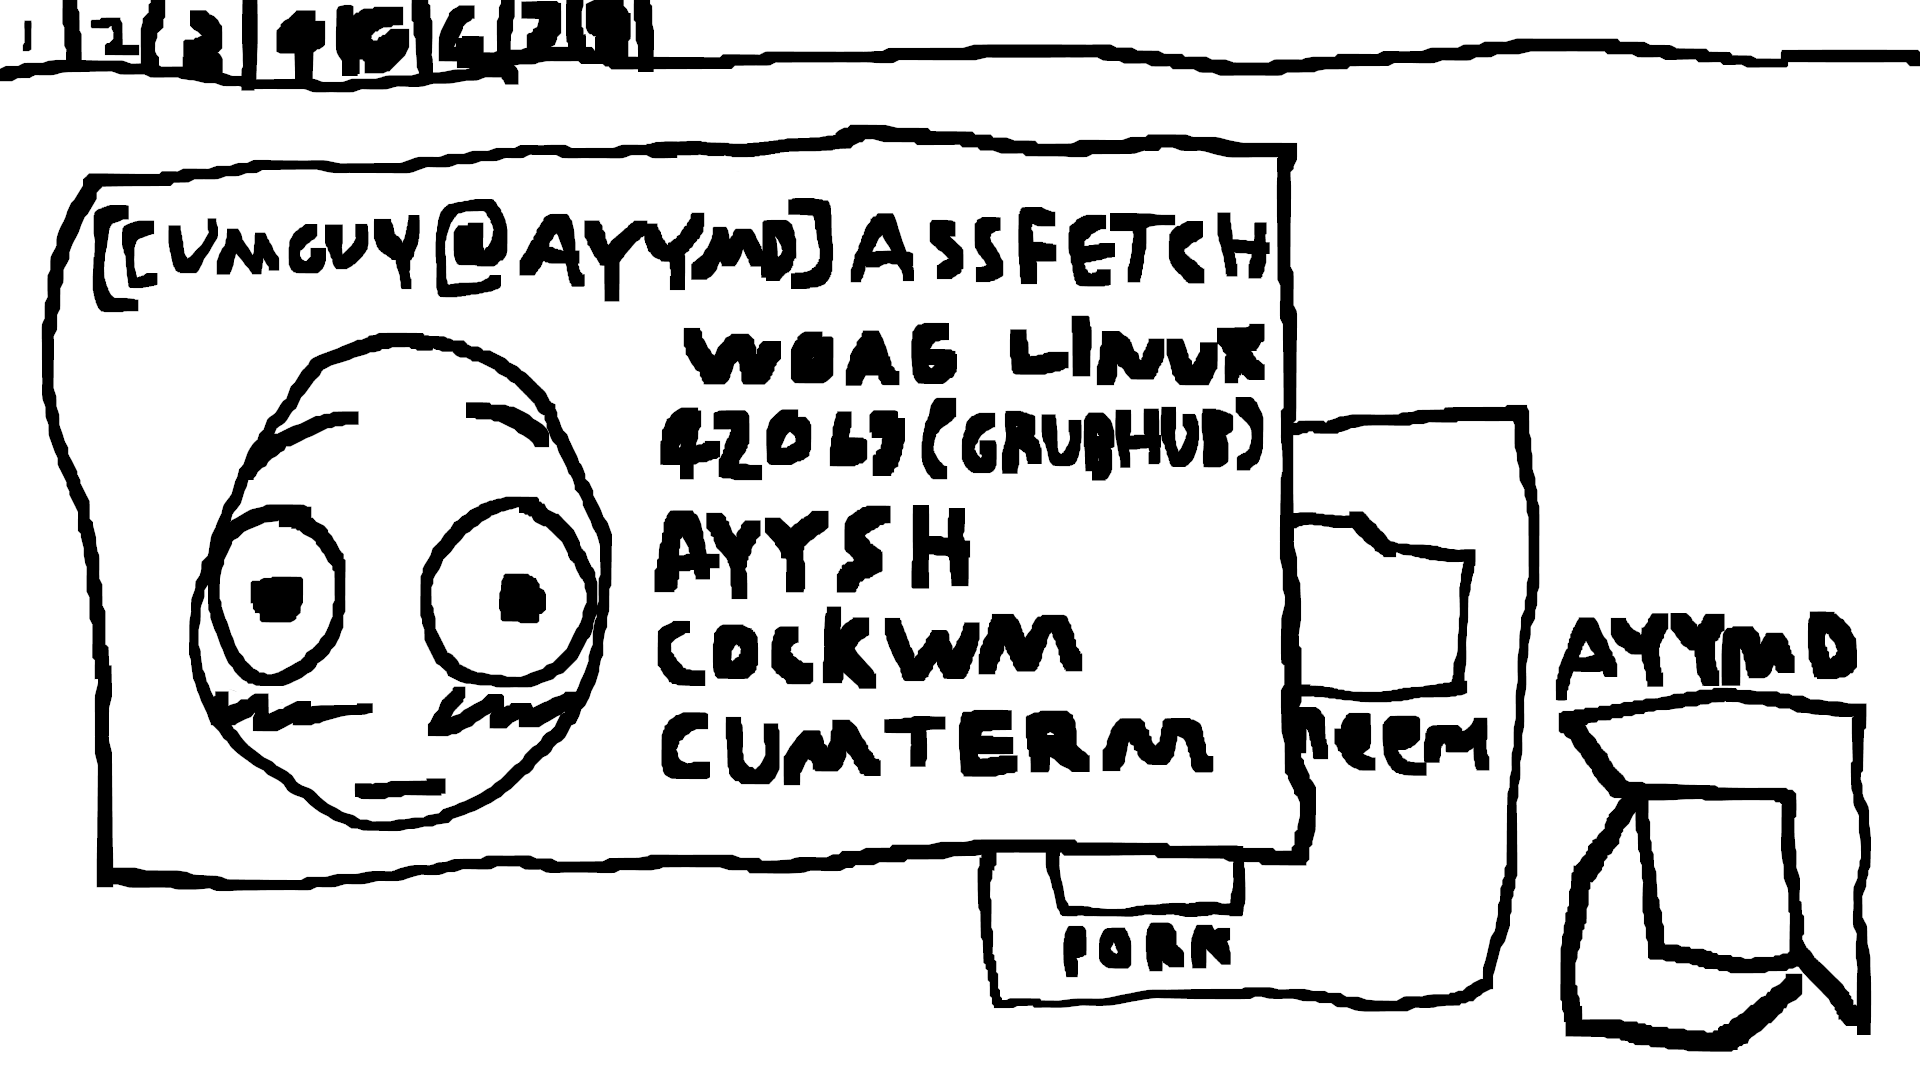 1 2 3 4 5 6 7 8
[CUMGUY@AYYMD] ASSFETCH
WOAG LINUX
42069 (GRUBHUB)
AYYSH
COCKWM
CUMTERM
neem
PORN
AYYMD